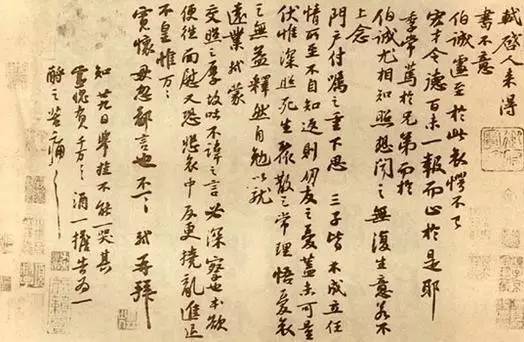 軾啓人來得
書不意
伯誠遽至於此哀愕不已
宏才令德百未一報而止於是耶
季常篤於兄弟而於
伯誠尤相知照想聞之無復生意若不
上念
門戶付囑之重下思三子皆不成立任
情所至不自知返則朋友之憂蓋未可量
伏惟深照死生聚散之常理悟憂哀
之無益釋然自勉以就
遠業軾蒙
交照之厚故吐不諱之言必深察也本欲
便往面慰又恐悲哀中反更撓亂進退
不皇惟萬〻
寬懷毋忽鄙言也不一〻軾再拜
知廿九日舉挂不能一哭其
靈愧負千萬〻〻酒一擔告為一
酹之苦痛〻〻